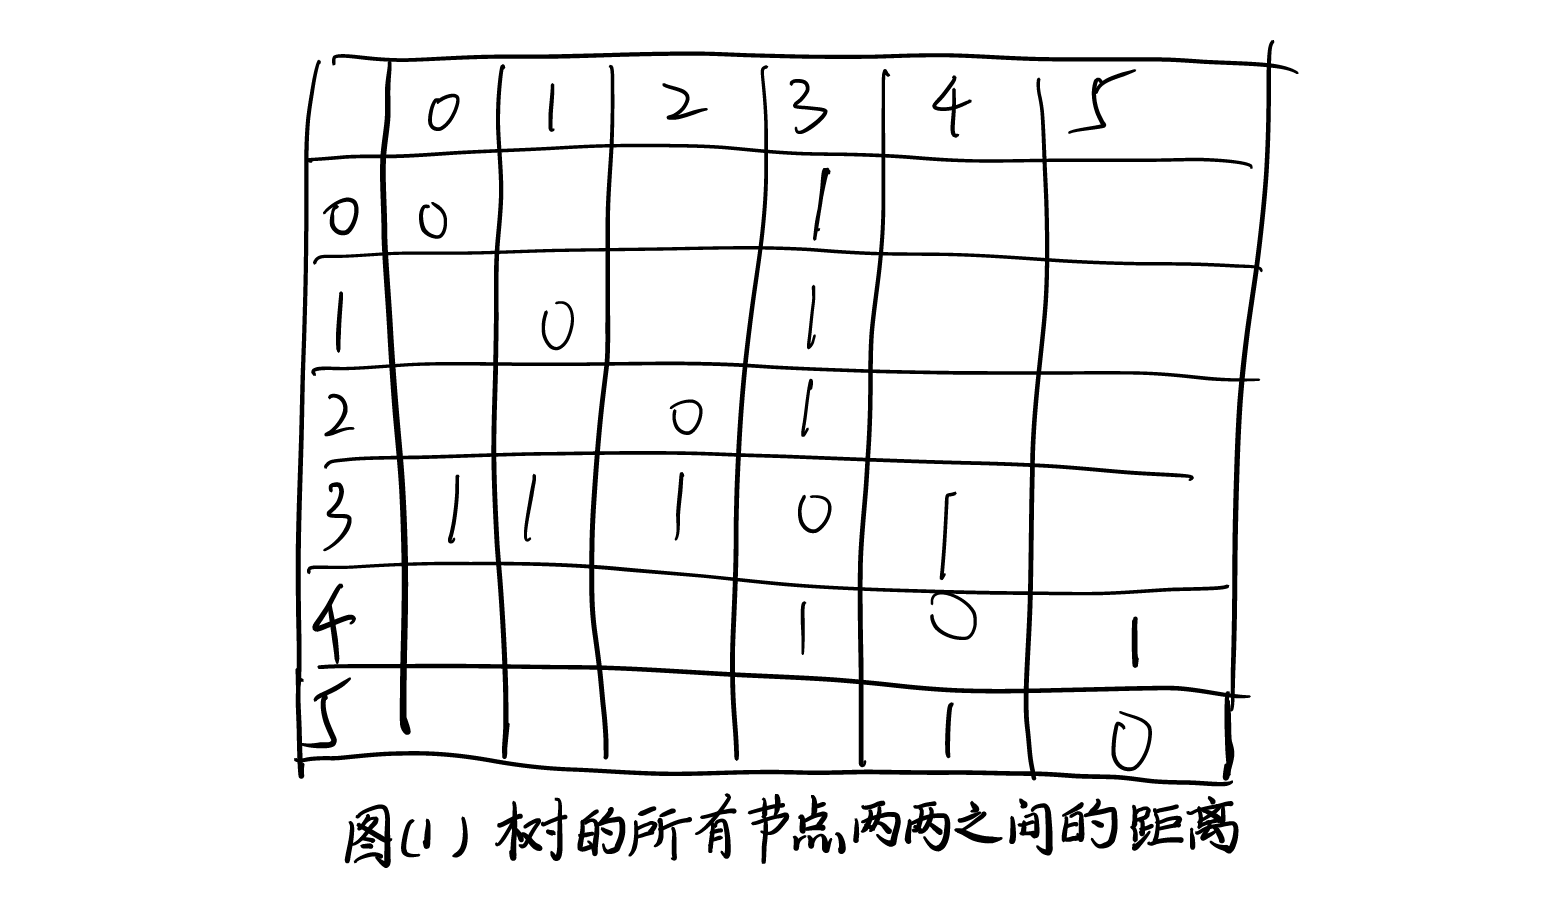 0 1 2 3 4 5
0 0 1
1 0 1
2 0 1
3 1 1 1 0 1
4 1 0 1
5 1 0
图(1) 树的所有节点两两之间的距离